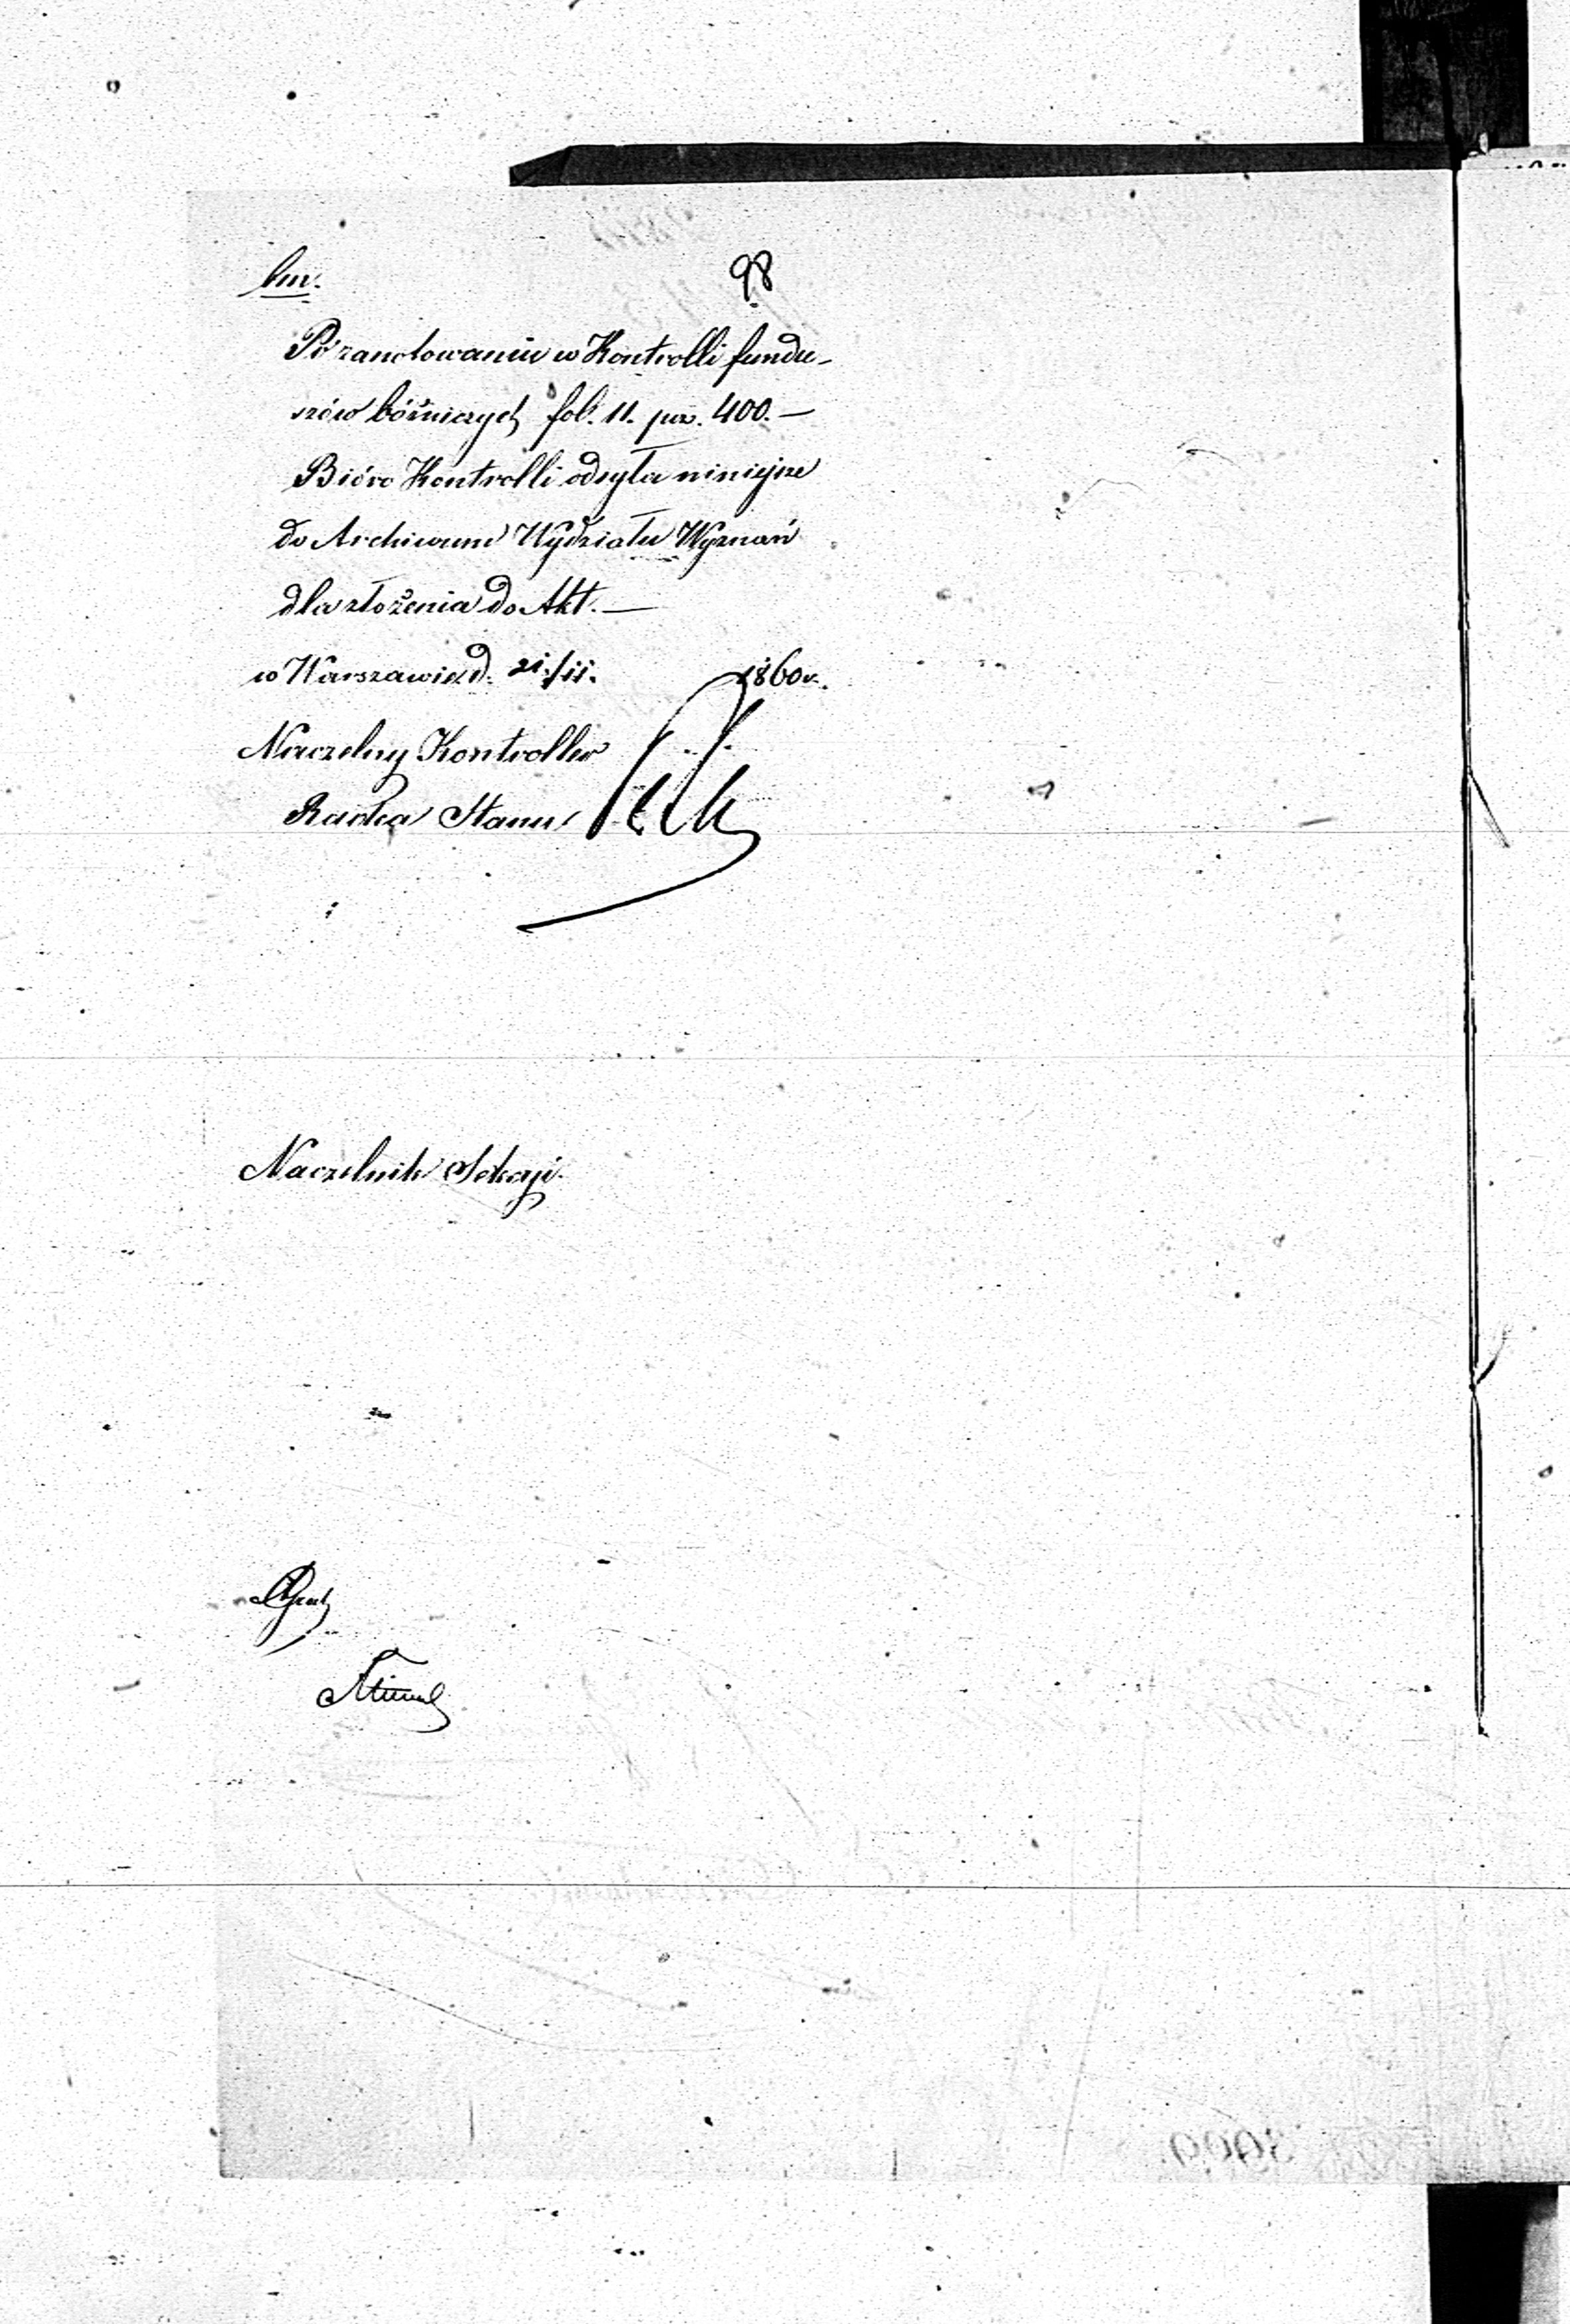 98
Po zanotowaniu w Kontrolli fundu-
szów bóżniczych fol. 11. poz. 400. —
Bióro Kontrolli odsyła niniejsze
do Archiwum Wydziału Wyznań
dla złożenia do Akt. —
w Warszawie d. 21/11. 1860 r.
Naczelny Kontroller
Radca Stanu
Naczelnik Sekcyi